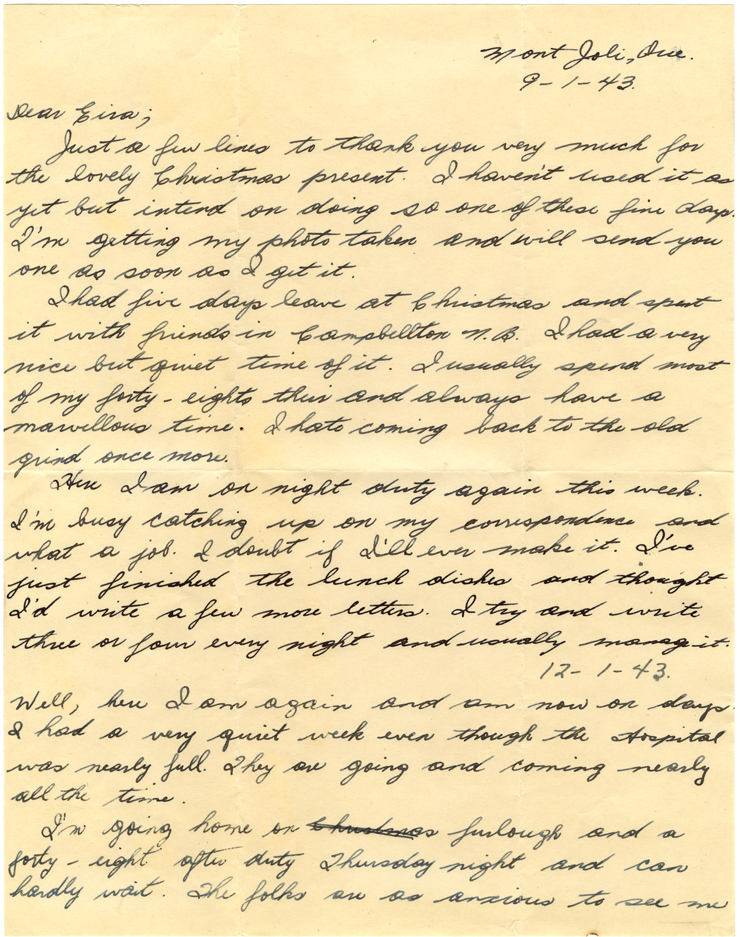 Mont Joli, Que.
9-1-43.
Dear Eira;
Just a few lines to thank you very much for
the lovely Christmas present. I haven't used it as
yet but intend on doing so one of these fine days.
I'm getting my photo taken and will send you
one as soon as I get it.
I had five days leave at Christmas and spent
it with friends in Campbellton N.B. I had a very
nice but quiet time of it. I usually spend most
of my forty-eights their and always have a
marvellous time. I hate coming back to the old
grind once more.
Here I am on night duty again this week.
I'm busy catching up on my correspondence and
what a job. I doubt if I'll ever make it. I've
just finished the lunch dishes and thought
I'd write a few more letters. I try and write
three or four every night and usually manag it.
12-1-43.
Well, here I am again and am now on days.
I had a very quiet week even though the Hospital
was nearly full. They are going and coming nearly
all the time.
I'm going home on Christmas furlough and a
forty-eight after duty Thursday night and can
hardly wait. The folks are as anxious to see me